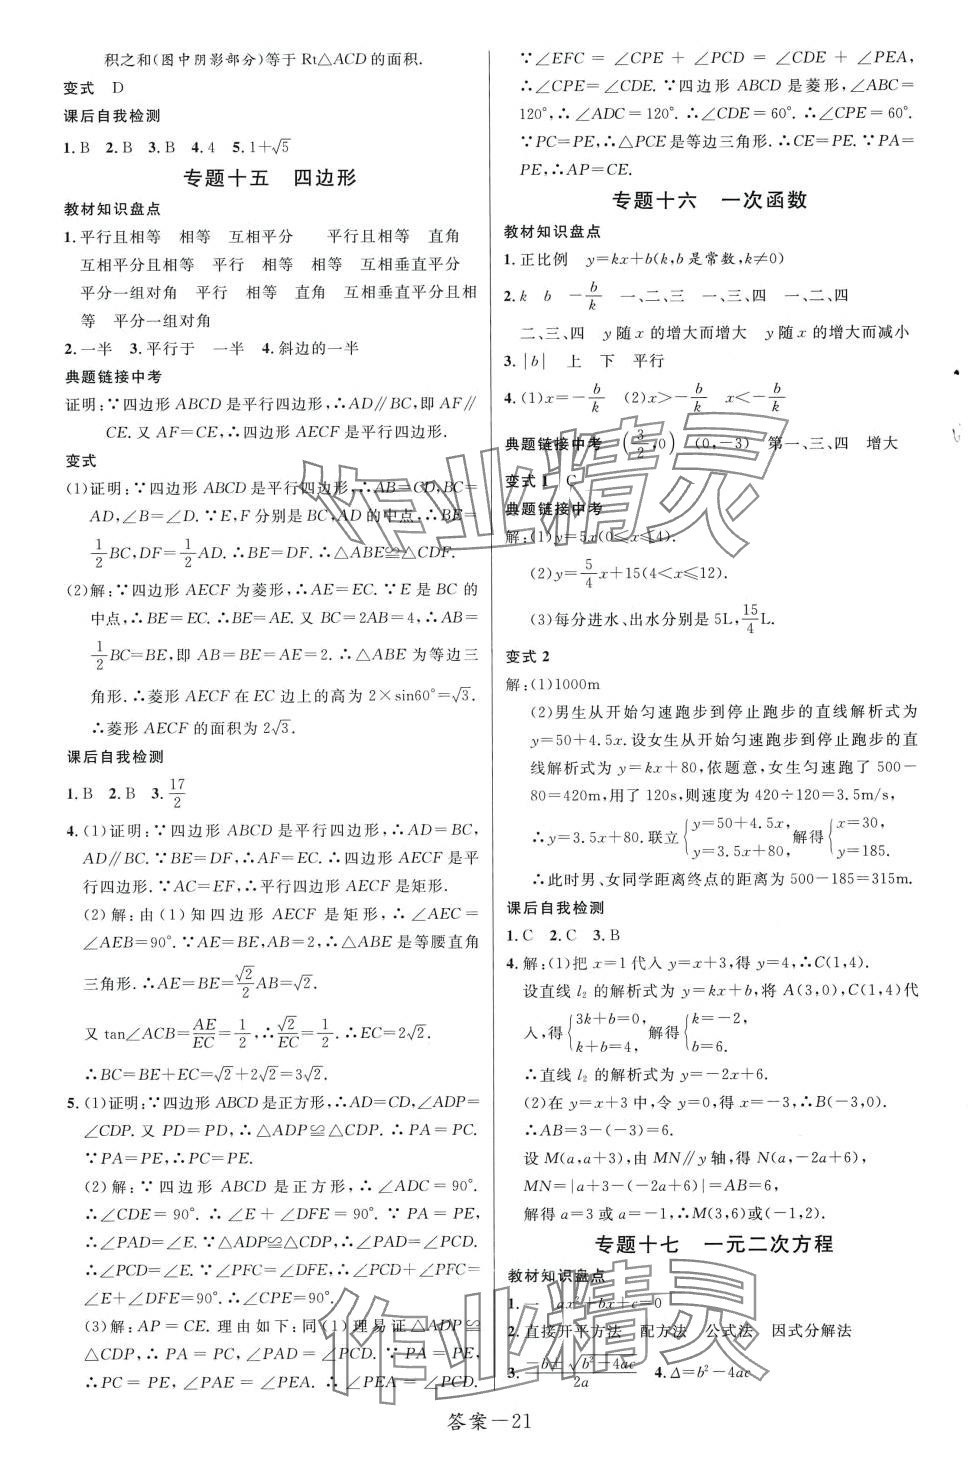 积之和(图中阴影部分)等于 Rt△ACD的面积.
变式 D
课后自我检测
1. B 2. B 3. B 4. 4 5. 1+√5
专题十五 四边形
教材知识盘点
1. 平行且相等 相等 互相平分 平行且相等 直角
互相平分且相等 平行 相等 互相垂直平分
平分一组对角 平行 相等 直角 互相垂直平分且相
等 平分一组对角
2. 一半 3. 平行于 一半 4. 斜边的一半
典题链接中考
证明:∵四边形 ABCD 是平行四边形,∴AD∥BC,即 AF∥
CE. 又 AF=CE,∴四边形 AECF 是平行四边形.
变式
(1)证明:∵四边形 ABCD 是平行四边形,∴AB=CD,BC=
AD,∠B=∠D. ∵E,F 分别是 BC,AD 的中点,∴BE=
1/2 BC,DF=1/2 AD. ∴BE=DF. ∴△ABE≌△CDF.
(2)解:∵四边形 AECF 为菱形,∴AE=EC. ∵E 是 BC 的
中点,∴BE=EC. ∴BE=AE. 又 BC=2AB=4,∴AB=
1/2 BC=BE,即 AB=BE=AE=2. ∴△ABE 为等边三
角形. ∴菱形 AECF 在 EC 边上的高为 2×sin60°=√3.
∴菱形 AECF 的面积为 2√3.
课后自我检测
1. B 2. B 3. 17/2
4. (1)证明:∵四边形 ABCD 是平行四边形,∴AD=BC,
AD∥BC. ∵BE=DF,∴AF=EC. ∴四边形 AECF 是平
行四边形. ∵AC=EF,∴平行四边形 AECF 是矩形.
(2)解:由(1)知四边形 AECF 是矩形,∴∠AEC=
∠AEB=90°. ∵AE=BE,AB=2,∴△ABE 是等腰直角
三角形. ∴AE=BE=√2/2 AB=√2.
又 tan∠ACB=AE/EC=1/2,∴√2/EC=1/2. ∴EC=2√2.
∴BC=BE+EC=√2+2√2=3√2.
5. (1)证明:∵四边形 ABCD 是正方形,∴AD=CD,∠ADP=
∠CDP. 又 PD=PD,∴△ADP≌△CDP. ∴PA=PC.
∵PA=PE,∴PC=PE.
(2)解:∵四边形 ABCD 是正方形,∴∠ADC=90°.
∴∠CDE=90°. ∴∠E+∠DFE=90°. ∵PA=PE,
∴∠PAD=∠E. ∵△ADP≌△CDP,∴∠PAD=∠PCD.
∴∠PCD=∠E. ∵∠PFC=∠DFE,∴∠PCD+∠PFC=
∠E+∠DFE=90°. ∴∠CPE=90°.
(3)解:AP=CE. 理由如下:同(1)理易证△ADP≌
△CDP. ∴PA=PC, ∠PAD=∠PCD. ∵PA=PE,
∴PC=PE, ∠PAE=∠PEA. ∴∠PEA=∠PCD.
∵∠EFC=∠CPE+∠PCD=∠CDE+∠PEA,
∴∠CPE=∠CDE. ∵四边形 ABCD 是菱形,∠ABC=
120°,∴∠ADC=120°. ∴∠CDE=60°. ∴∠CPE=60°.
∵PC=PE,∴△PCE 是等边三角形. ∴CE=PE. ∵PA=
PE,∴AP=CE.
专题十六 一次函数
教材知识盘点
1. 正比例 y=kx+b(k,b 是常数,k≠0)
2. k b -b/k 一、二、三 一、三、四 一、二、四
二、三、四 y 随 x 的增大而增大 y 随 x 的增大而减小
3. |b| 上 下 平行
4. (1)x=-b/k (2)x>-b/k x<-b/k
典题链接中考 (3/2,0) (0,-3) 第一、三、四 增大
变式 1 C
典题链接中考
解:(1)y=5x(0<x≤4).
(2)y=5/4 x+15(4<x≤12).
(3)每分进水、出水分别是 5L,15/4 L.
变式 2
解:(1)1000m
(2)男生从开始匀速跑步到停止跑步的直线解析式为
y=50+4.5x. 设女生从开始匀速跑步到停止跑步的直
线解析式为 y=kx+80,依题意,女生匀速跑了 500-
80=420m,用了 120s,则速度为 420÷120=3.5m/s,
∴y=3.5x+80. 联立{y=50+4.5x, y=3.5x+80, 解得{x=30, y=185.
∴此时男、女同学距离终点的距离为 500-185=315m.
课后自我检测
1. C 2. C 3. B
4. 解:(1)把 x=1 代入 y=x+3,得 y=4,∴C(1,4).
设直线 l₂ 的解析式为 y=kx+b,将 A(3,0),C(1,4)代
入,得{3k+b=0, k+b=4, 解得{k=-2, b=6.
∴直线 l₂ 的解析式为 y=-2x+6.
(2)在 y=x+3 中,令 y=0,得 x=-3,∴B(-3,0).
∴AB=3-(-3)=6.
设 M(a,a+3),由 MN∥y 轴,得 N(a,-2a+6).
MN=|a+3-(-2a+6)|=AB=6,
解得 a=3 或 a=-1,∴M(3,6)或(-1,2).
专题十七 一元二次方程
教材知识盘点
1. 一 ax²+bx+c=0
2. 直接开平方法 配方法 公式法 因式分解法
3. (-b±√(b²-4ac))/2a 4. Δ=b²-4ac
答案-21
作业精灵
作业精灵